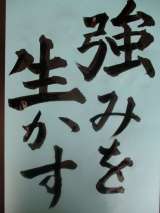 強みを
生かす